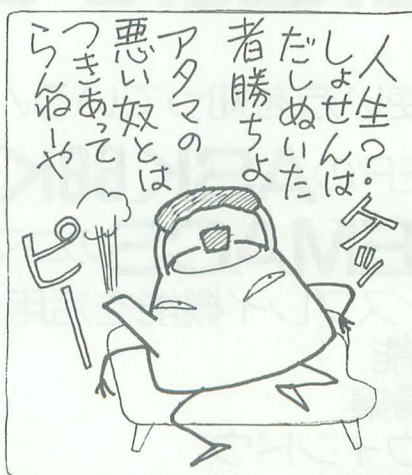 人生？
しょせんは
だしぬいた
者勝ちよ
アタマの
悪い奴とは
つきあって
らんねーや
ケッ
ピー